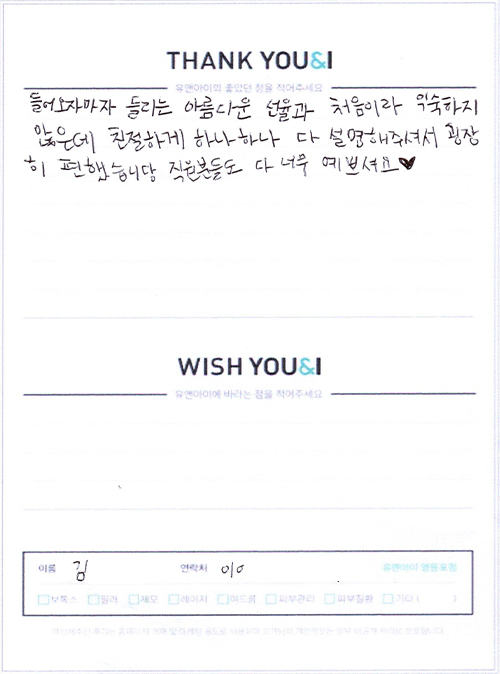 THANK YOU&I
유앤아이의 좋았던 점을 적어주세요
들어오자마자 들리는 아름다운 선율과 처음이라 익숙하지
않은데 친절하게 하나하나 다 설명해주셔서 굉장
히 편했습니당 직원분들도 다 너무 예쁘셔요♥
WISH YOU&I
유앤아이에 바라는 점을 적어주세요
이름 김 연락처 010 유앤아이 명동점
보톡스 필러 제모 레이저 여드름 피부관리 피부질환 기타 ( )